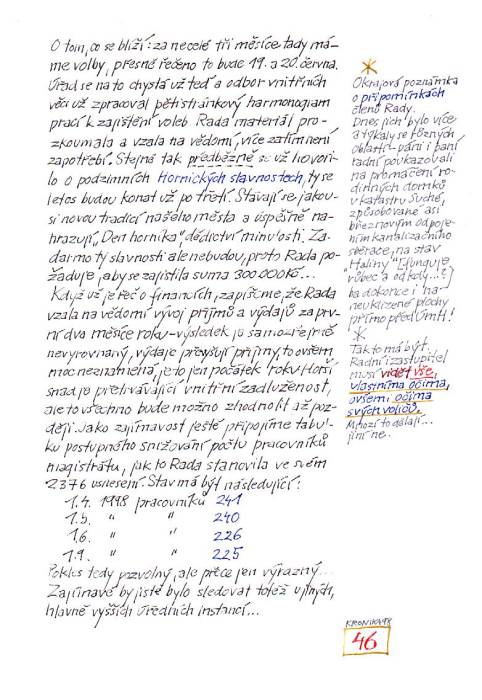 O tom, co se blíží: za necelé tři měsíce tady má-
me volby, přesně řečeno to bude 19. a 20. června.
Úřad se na to chystá už teď a odbor vnitřních
věcí už zpracoval pětistránkový harmonogram
prací k zajištění voleb. Rada materiál pro-
zkoumala a vzala na vědomí, více zatím není
zapotřebí. Stejně tak předběžně se už hovoři-
lo o podzimních Hornických slavnostech, ty se
letos budou konat už po třetí. Stávají se jakou-
si novou tradicí našeho města a úspěšně na-
hrazují „Den horníka", dědictví minulosti. Za-
darmo ty slavnosti ale nebudou, proto Rada po-
žaduje, aby se zajistila suma 300.000 Kč...
Když už je řeč o financích, zapíšeme, že Rada
vzala na vědomí vývoj příjmů a výdajů za prv-
ní dva měsíce roku - výsledek je samozřejmě
nevyrovnaný, výdaje převyšují příjmy, to ovšem
moc neznamená, je to jen počátek roku. Horší
snad je přetrvávající vnitřní zadluženost,
ale to všechno bude možno zhodnotit až poz-
ději. Jako zajímavost ještě připojíme tabul-
ku postupného snižování počtu pracovníků
magistrátu, jak to Rada stanovila ve svém
2376 usnesení. Stav má být následující:
1.4. 1998 pracovníků 241
1.5. " " 240
1.6. " " 226
1.9. " " 225
Pokles tedy pozvolný, ale přece jen výrazný...
Zajímavé by jistě bylo sledovat totéž u jiných,
hlavně vyšších úředních instancí...
*
Okrajová poznámka
o připomínkách
členů Rady.
Dnes jich bylo více
a týkaly se různých
oblastí - páni i paní
radní poukazovali
na promáčení ro-
dinných domků
v katastru Suché,
způsobované asi
březnovým odpoje-
ním kanalizačního
sběrače, na stav
"Haliny" [funguje
vůbec a od kdy...?]
ba dokonce i na
neuklizené plochy
přímo před ÚMH!
*
Tak to má být.
Radní i zastupitel
musí vidět vše,
vlastníma očima,
ovšem i očima
svých voličů.
Mnozí to dělají...
jiní ne..
KRONIKA 98
46